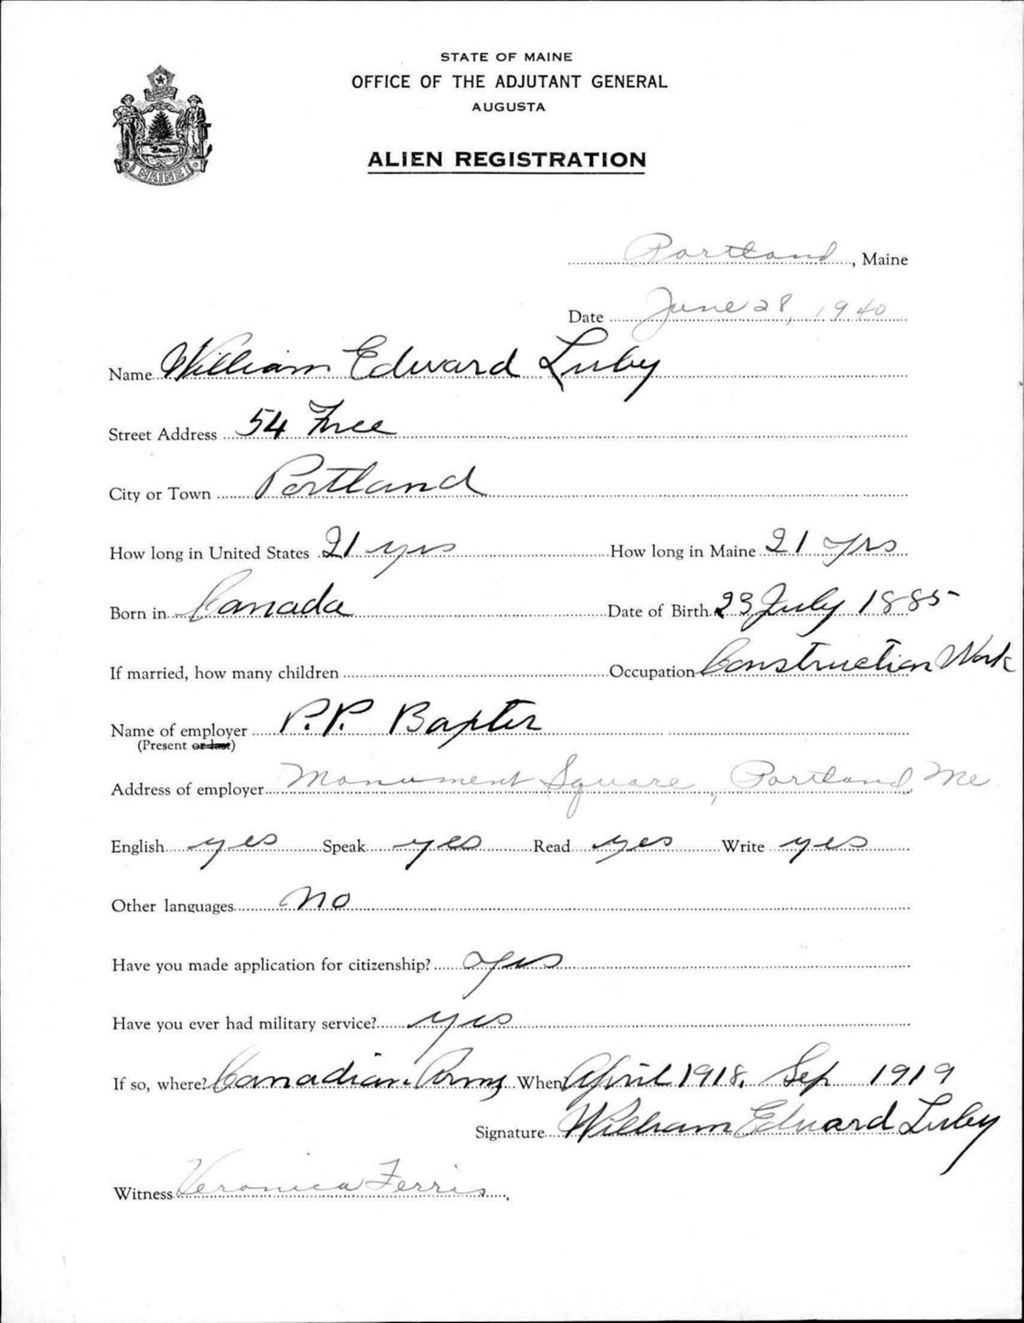 STATE OF MAINE
OFFICE OF THE ADJUTANT GENERAL
AUGUSTA
ALIEN REGISTRATION
MAINE
Portland, Maine
Date June 28, 1940
Name William Edward Luby
Street Address 54 Free
City or Town Portland
How long in United States 21 yrs How long in Maine 21 yrs
Born in Canada Date of Birth 23 July 1885
If married, how many children Occupation Construction Work
Name of employer P.P. Baxter
(Present or last)
Address of employer Monument Square, Portland Me
English yes Speak yes Read yes Write yes
Other languages no
Have you made application for citizenship? yes
Have you ever had military service? yes
If so, where? Canadian Army When April 1918. Sep 1919
Signature William Edward Luby
Witness Veronica Ferris